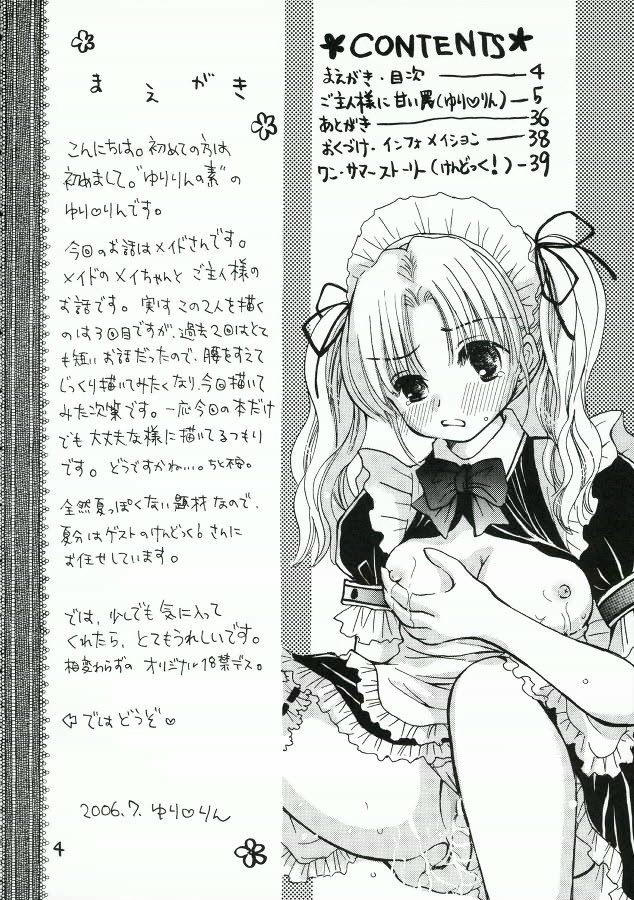 まえがき
こんにちは。初めての方は
初めまして。"ゆりりんの素"の
ゆり♡りんです。
今回のお話はメイドさんです。
メイドのメイちゃんとご主人様の
お話です。実はこの2人を描く
のは3回目ですが、過去2回はとて
も短いお話だったので、腰をすえて
じっくり描いてみたくなり、今回描いて
みた次第です。一応今回の本だけ
でも大丈夫な様に描いてるつもり
です。どうですかねぃ。
全然夏っぽくない題材なので、
夏分はゲストのけんどっく!さんに
お任せしています。
では、少しでも気に入って
くれたら、とてもうれしいです。
相変わらずのオリジナル18禁デス。
⇦ではどうぞ♡
2006.7. ゆり♡りん
4
*CONTENTS*
まえがき・目次 ― 4
ご主人様に甘い罠(ゆり♡りん) ― 5
あとがき ― 36
おくづけ・インフォメイション ― 38
ワン・サマーストーリー(けんどっく!) ― 39